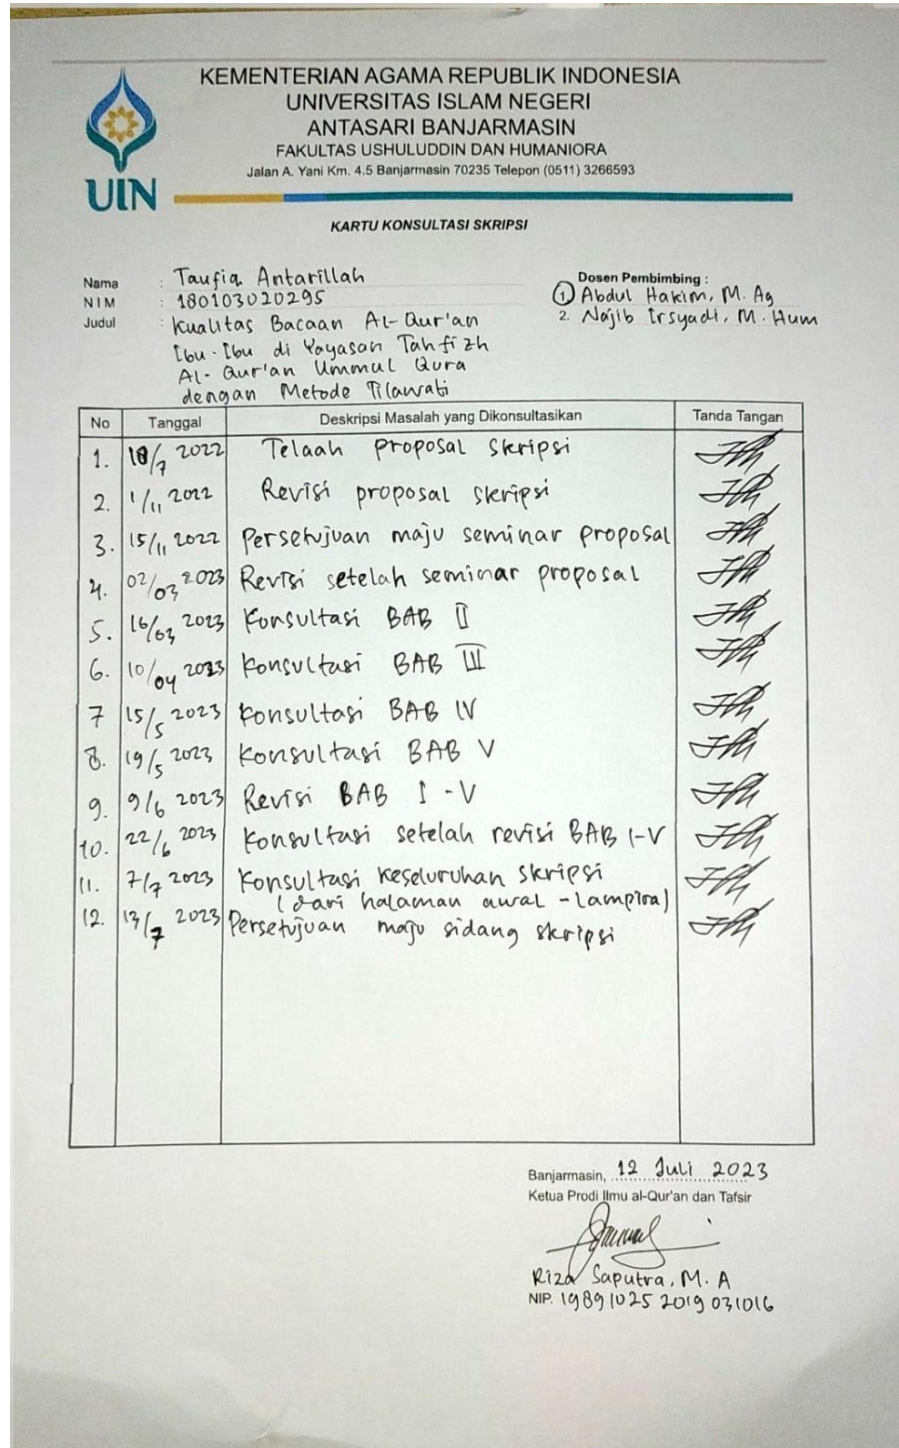 KEMENTERIAN AGAMA REPUBLIK INDONESIA
UNIVERSITAS ISLAM NEGERI
ANTASARI BANJARMASIN
FAKULTAS USHULUDDIN DAN HUMANIORA
Jalan A. Yani Km. 4.5 Banjarmasin 70235 Telepon (0511) 3266593
UIN
KARTU KONSULTASI SKRIPSI
Nama : Taufiq Antarillah
NIM : 180103020295
Judul : Kualitas Bacaan Al-Qur'an
Ibu-Ibu di Yayasan Tahfizh
Al-Qur'an Ummul Qura
dengan Metode Tilawati
Dosen Pembimbing :
1 Abdul Hakim, M. Ag
2. Najib Irsyadi, M. Hum
No Tanggal Deskripsi Masalah yang Dikonsultasikan Tanda Tangan
1. 18/7 2022 Telaah proposal skripsi
2. 1/11 2022 Revisi proposal skripsi
3. 15/11 2022 Persetujuan maju seminar proposal
4. 02/03 2023 Revisi setelah seminar proposal
5. 16/03 2023 Konsultasi BAB II
6. 10/04 2023 Konsultasi BAB III
7 15/5 2023 Konsultasi BAB IV
8. 19/5 2023 Konsultasi BAB V
9. 9/6 2023 Revisi BAB I - V
10. 22/6 2023 Konsultasi setelah revisi BAB I-V
11. 7/7 2023 Konsultasi keseluruhan skripsi
(dari halaman awal - lampira)
12. 13/7 2023 Persetujuan maju sidang skripsi
Banjarmasin, 12 Juli 2023
Ketua Prodi Ilmu al-Qur'an dan Tafsir
Riza Saputra, M. A
NIP. 19891025 2019 031016